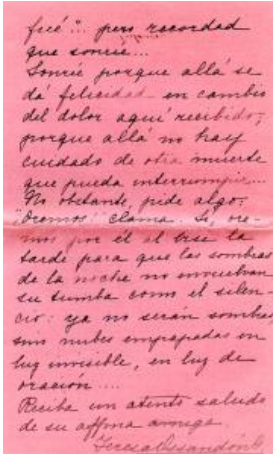 fué"... pero recordad
que sonrie...
Sonrie porque allá se
dá felicidad en cambio
del dolor aquí recibido;
porque allá no hay
cuidado de otra muerte
que pueda interrumpir...
No obstante, pide algo:
"Oremos" clama. Si, ore-
mos por él al irse la
tarde para que las sombras
de la noche no envuelvan
su tumba como el silen-
cio: ya no serán sombras
sino nubes empapadas en
luz invisible, en luz de
oración....
Reciba un atento saludo
de su affma amiga.
Teresa Ossandón